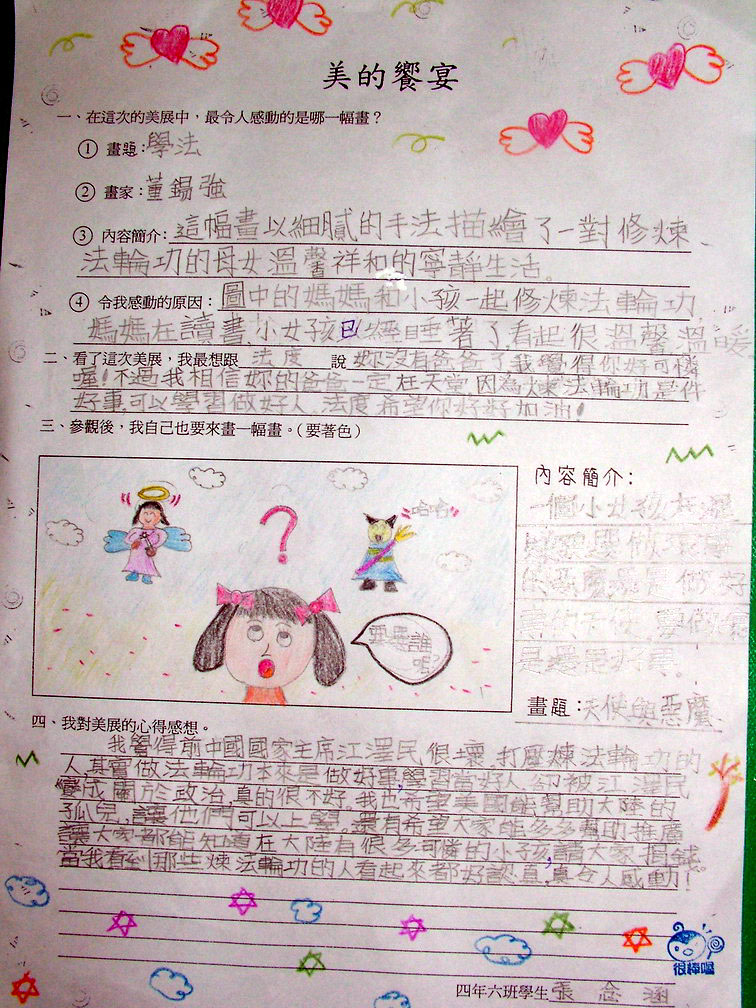 美的饗宴
一、在這次的美展中，最令人感動的是哪一幅畫？
① 畫題：學法
② 畫家：董錫強
③ 內容簡介：這幅畫以細膩的手法描繪了一對修煉
法輪功的母女溫馨祥和的寧靜生活。
④ 令我感動的原因：圖中的媽媽和小孩一起修煉法輪功，
媽媽在讀書，小女孩已經睡著了，看起很溫馨溫暖
二、看了這次美展，我最想跟 法度 說 妳沒有爸爸了，我覺得你好可憐
喔！不過我相信妳的爸爸一定在天堂，因為煉法輪功是件
好事，可以學習做好人，法度希望你好好加油！
三、參觀後，我自己也要來畫一幅畫。（要著色）
哈哈
要選誰呢
內容簡介：
一個小女孩在選
好
的天使，要做
畫題：天使與惡魔
四、我對美展的心得感想。
我覺得前中國國家主席江澤民很壞，打壓煉法輪功的
人，其實做法輪功本來是做好事，學習當好人，卻被江澤民
變成關於政治，真的很不好，我也希望美國能幫助大陸的
孤兒，讓他們可以上學。還有希望大家能多多幫助推廣
讓大家都能知道在大陸有很多可憐的小孩，請大家捐錢。
當我看到那些煉法輪功的人看起來都好認真，真令人感動！
很棒喔
四年六班學生 張念涵